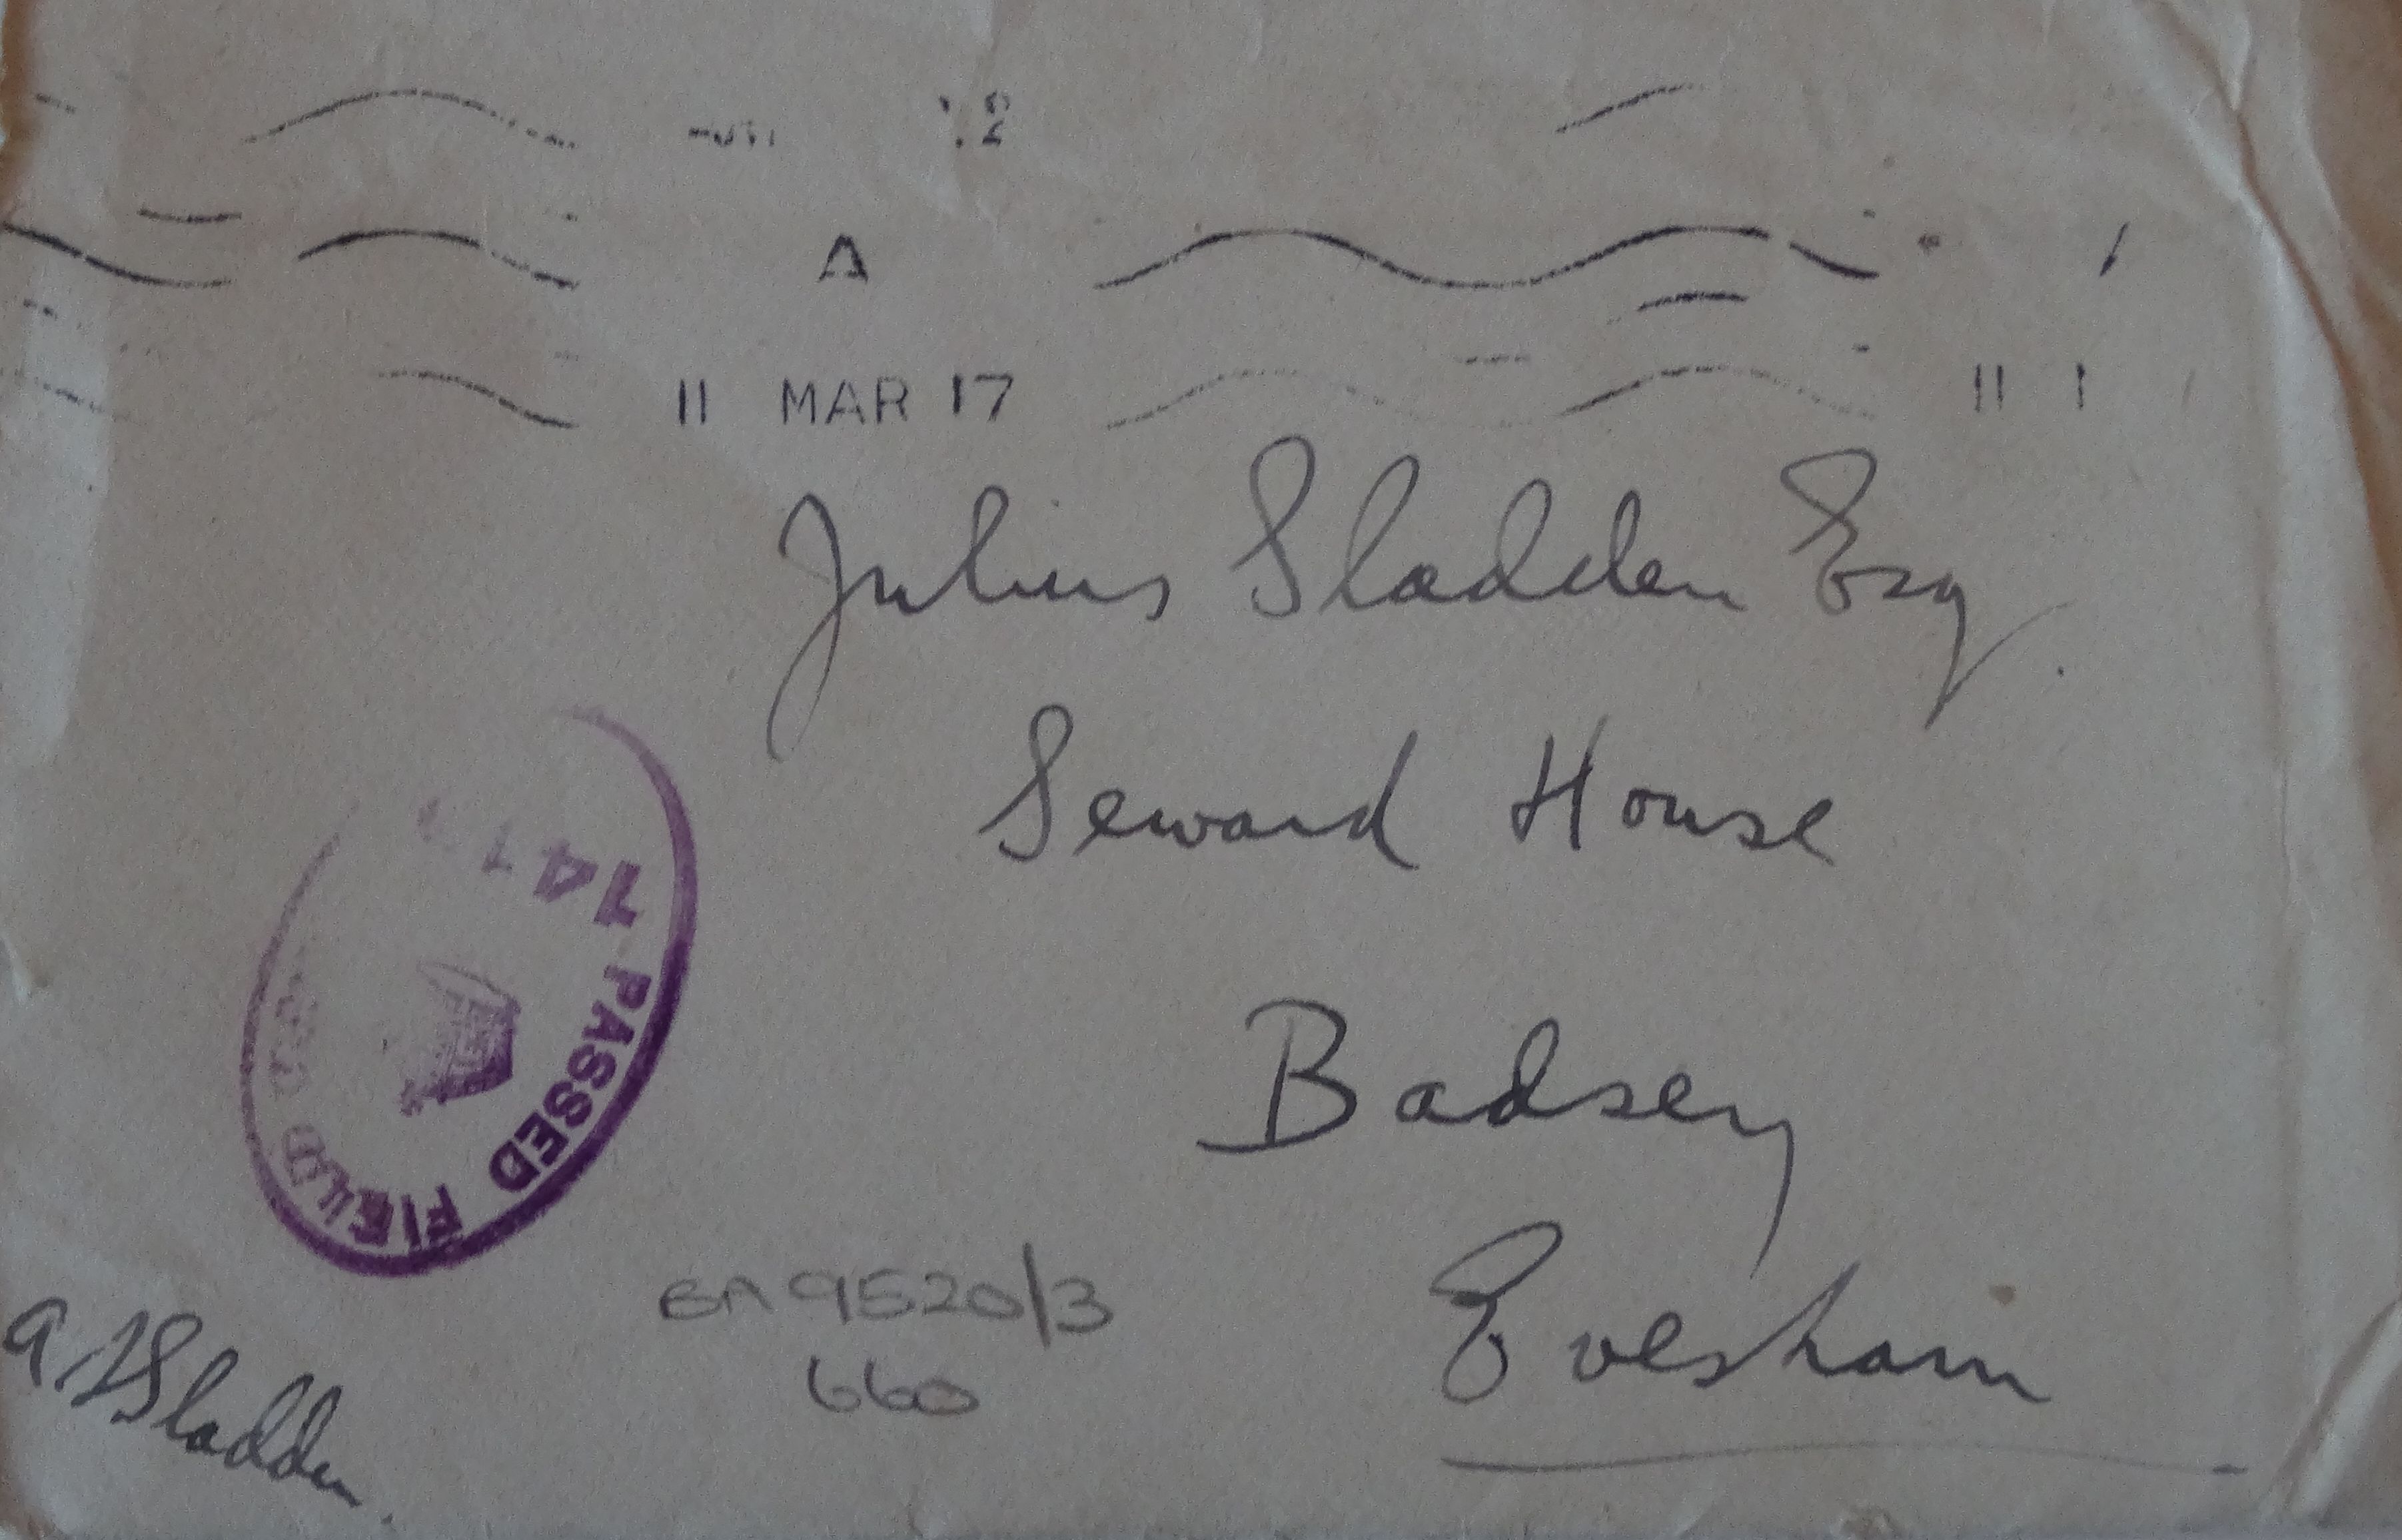 A
11 MAR 17 11 1
Julius Sladden Esq.
Seward House
Badsey
Evesham
PASSED FIELD
EA 9520/3
660
A. F Sladden.